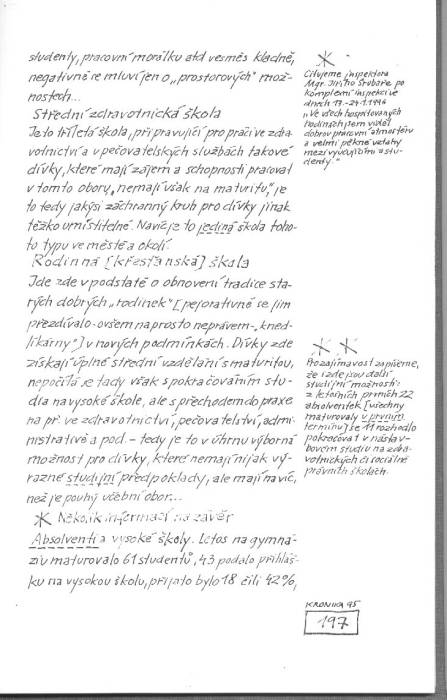 studenty, pracovní morálku atd vesměs kladně,
negativně se mluví jen o „prostorových" mož-
nostech...
Střední zdravotnická škola
Je to tříletá škola, připravující pro práci ve zdra-
votnictví a v pečovatelských službách takové
dívky, které mají zájem a schopnosti pracovat
v tomto oboru, „nemají však na maturitu", je
to tedy jakýsi záchranný kruh pro dívky jinak
těžko umístitelné. Navíc je to jediná škola toho-
to typu ve městě a okolí.
Rodinná [křesťanská] škola
Jde zde v podstatě o obnovení tradice sta-
rých dobrých „rodinek" [pejorativně se jim
přezdívalo - ovšem naprosto neprávem - „kned-
líkárny"] v nových podmínkách. Dívky zde
získají úplné střední vzdělání s maturitou,
nepočítá se tady však s pokračováním stu-
dia na vysoké škole, ale s přechodem do praxe
na př. ve zdravotnictví, pečovatelství, admi-
nistrativě a pod. - tedy je to v úhrnu výborná
možnost pro dívky, které nemají nijak vý-
razné studijní předpoklady, ale mají na víc,
než je pouhý učební obor...
* Několik informací na závěr
Absolventi a vysoké školy. Letos na gymná-
ziu maturovalo 61 studentů, 43 podalo přihláš-
ku na vysokou školu, přijato bylo 18 čili 42%,
*
Citujeme inspektora
Mgr. Jiřího Štrubaře po
komplexní inspekci ve
dnech 17.-24.1.1996
„Ve všech hospitovaných
hodinách jsem viděl
dobrou pracovní atmosféru
a velmi pěkné vztahy
mezi vyučujícími a stu-
denty."
* *
Pro zajímavost zapišme,
že i zde jsou další
studijní možnosti:
z letošních prvních 22
absolventek [všechny
maturovaly v prvním
termínu] se 11 rozhodlo
pokračovat v nástav-
bovém studiu na zdra-
votnických či sociálně
právních školách.
KRONIKA 95
197